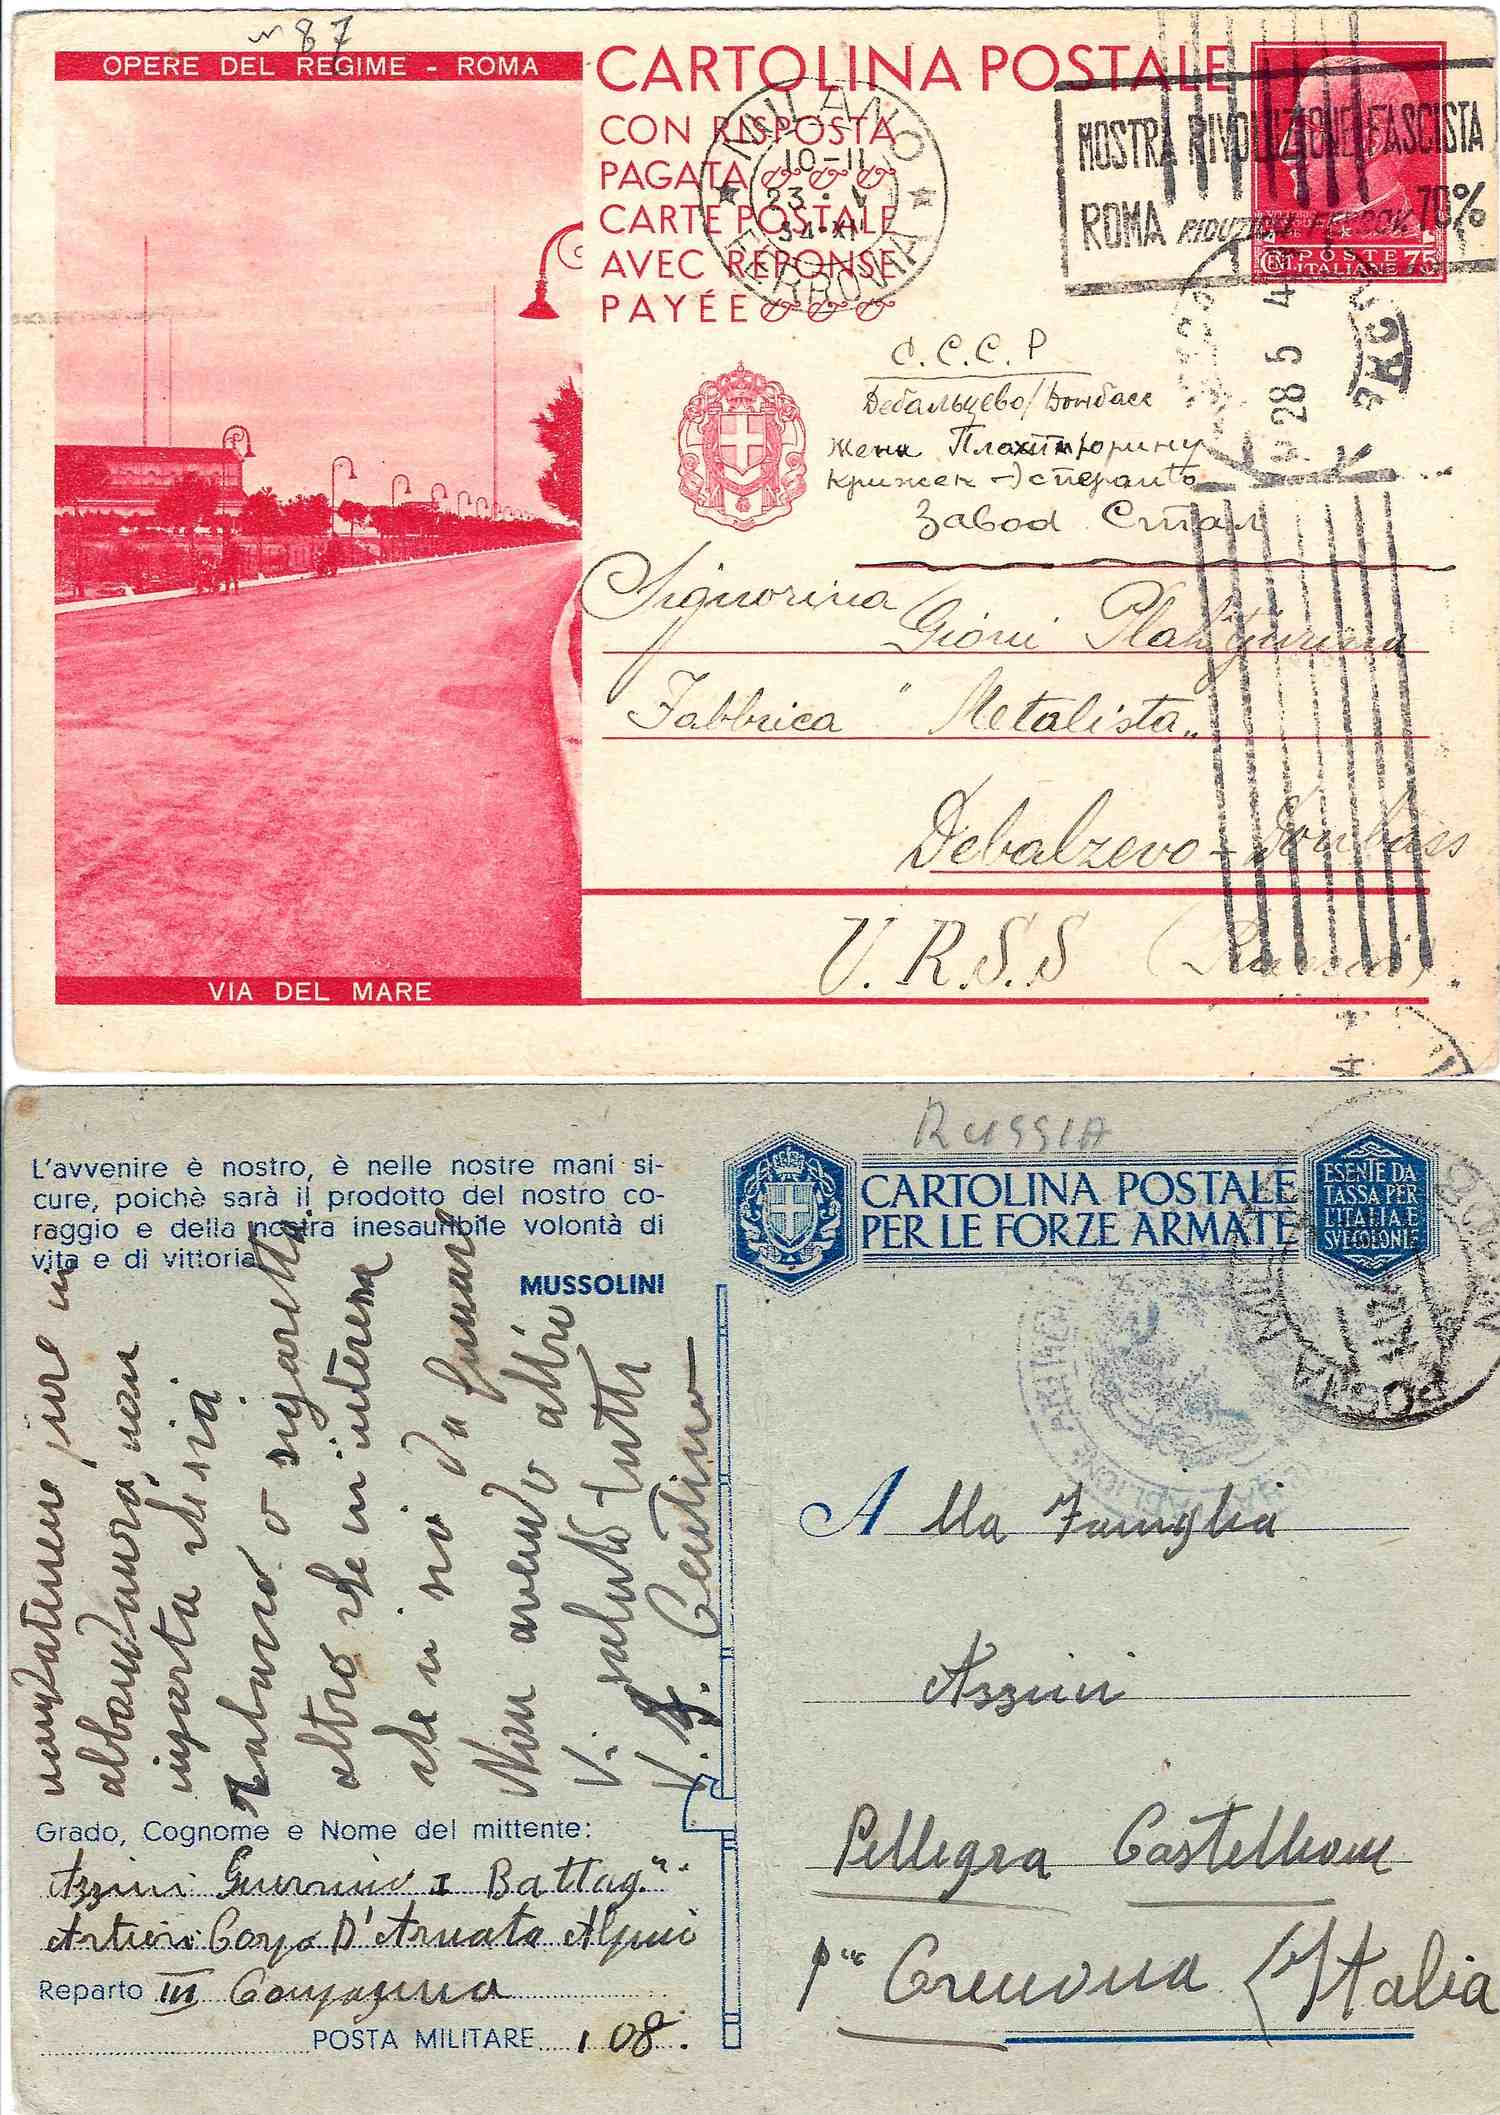 n 87
OPERE DEL REGIME - ROMA
CARTOLINA POSTALE
CON RISPOSTA
PAGATA
CARTE POSTALE
AVEC RÉPONSE
PAYÉE
MILANO
10-11
23 · V
34·XII
FERROVIA
MOSTRA RIVOLUZIONE FASCISTA
ROMA RIDUZIONI FERROV. 70%
POSTE
ITALIANE
CENT 75
28 5
С.С.С.Р
Дебальцево/Донбасс
Жени
крижек → эсперанто
Завод Стал
Signorina
Gioni
Fabbrica "Metalista"
Debalzevo - Donbass
U.R.S.S (Russia).
VIA DEL MARE
RUSSIA
L'avvenire è nostro, è nelle nostre mani si-
cure, poichè sarà il prodotto del nostro co-
raggio e della nostra inesauribile volontà di
vita e di vittoria
MUSSOLINI
CARTOLINA POSTALE
PER LE FORZE ARMATE
ESENTE DA
TASSA PER
L'ITALIA E
SUE COLONIE
BOLOGNA
pure in
abbondanza, non
importa che sia
tabacco o sigarette
altro che m'interessa
che vi sia da fumare
Non avendo altro
Vi saluto tutti
Alla Famiglia
Azzini
Pellegra Castelleone
Pce Cremona (Italia
Grado, Cognome e Nome del mittente:
Azzini Guerrino I Battag.
Artieri Corpo D'Armata Alpino
Reparto III Compagnia
POSTA MILITARE 108.